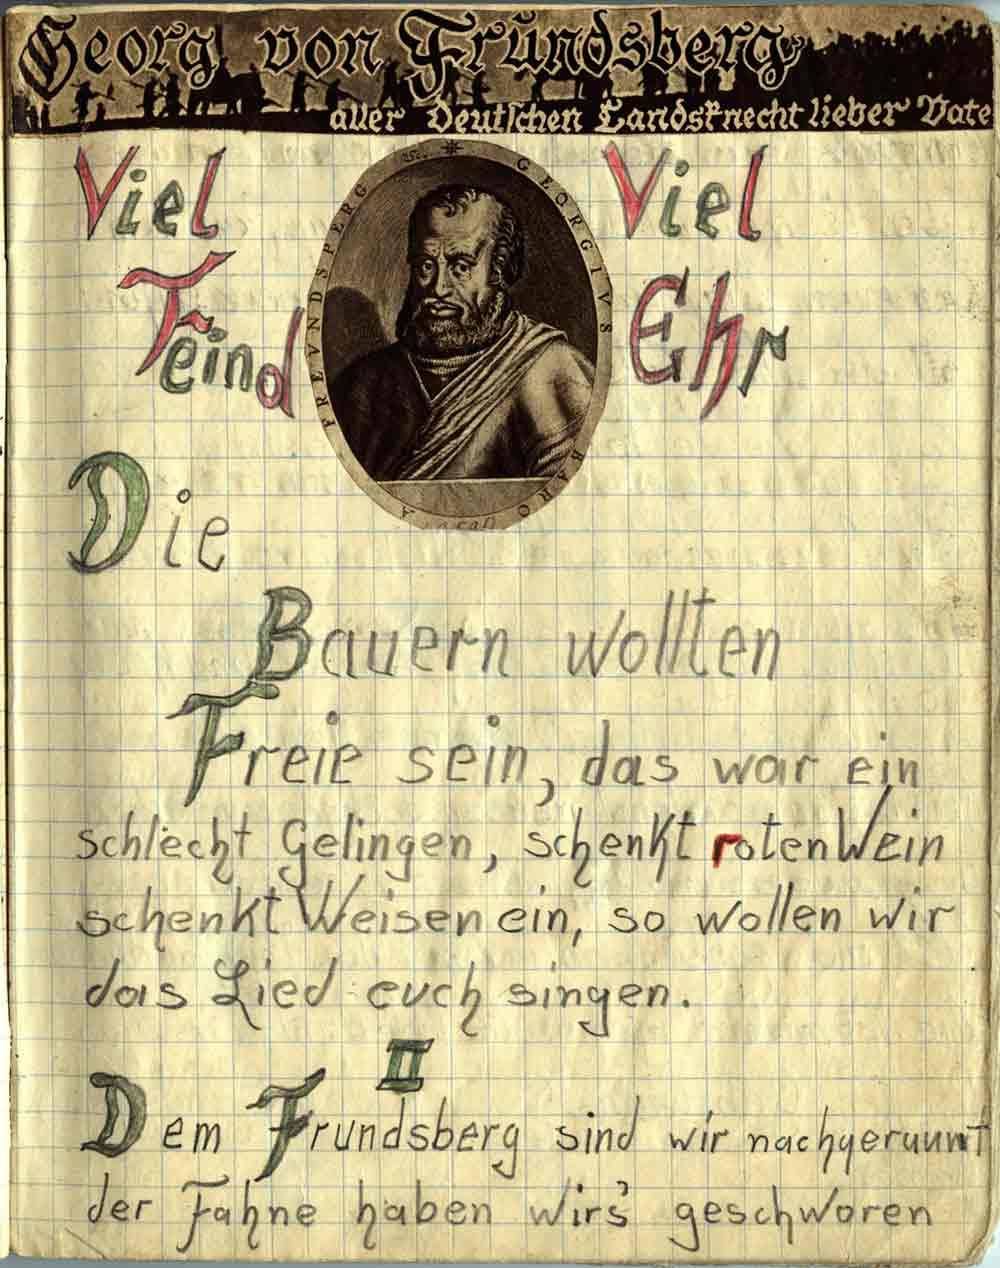 Georg von Frundsberg
aller Deutschen Landsknecht lieber Vate
Viel Viel
Feind Ehr
GEORGIVS FREVNDSPERG BARO A
Die
Bauern wollten
Freie sein, das war ein
schlecht Gelingen, schenkt roten Wein
schenkt Weisen ein, so wollen wir
das Lied euch singen.
II
Dem Frundsberg sind wir nachgeraunt
der Fahne haben wirs' geschworen